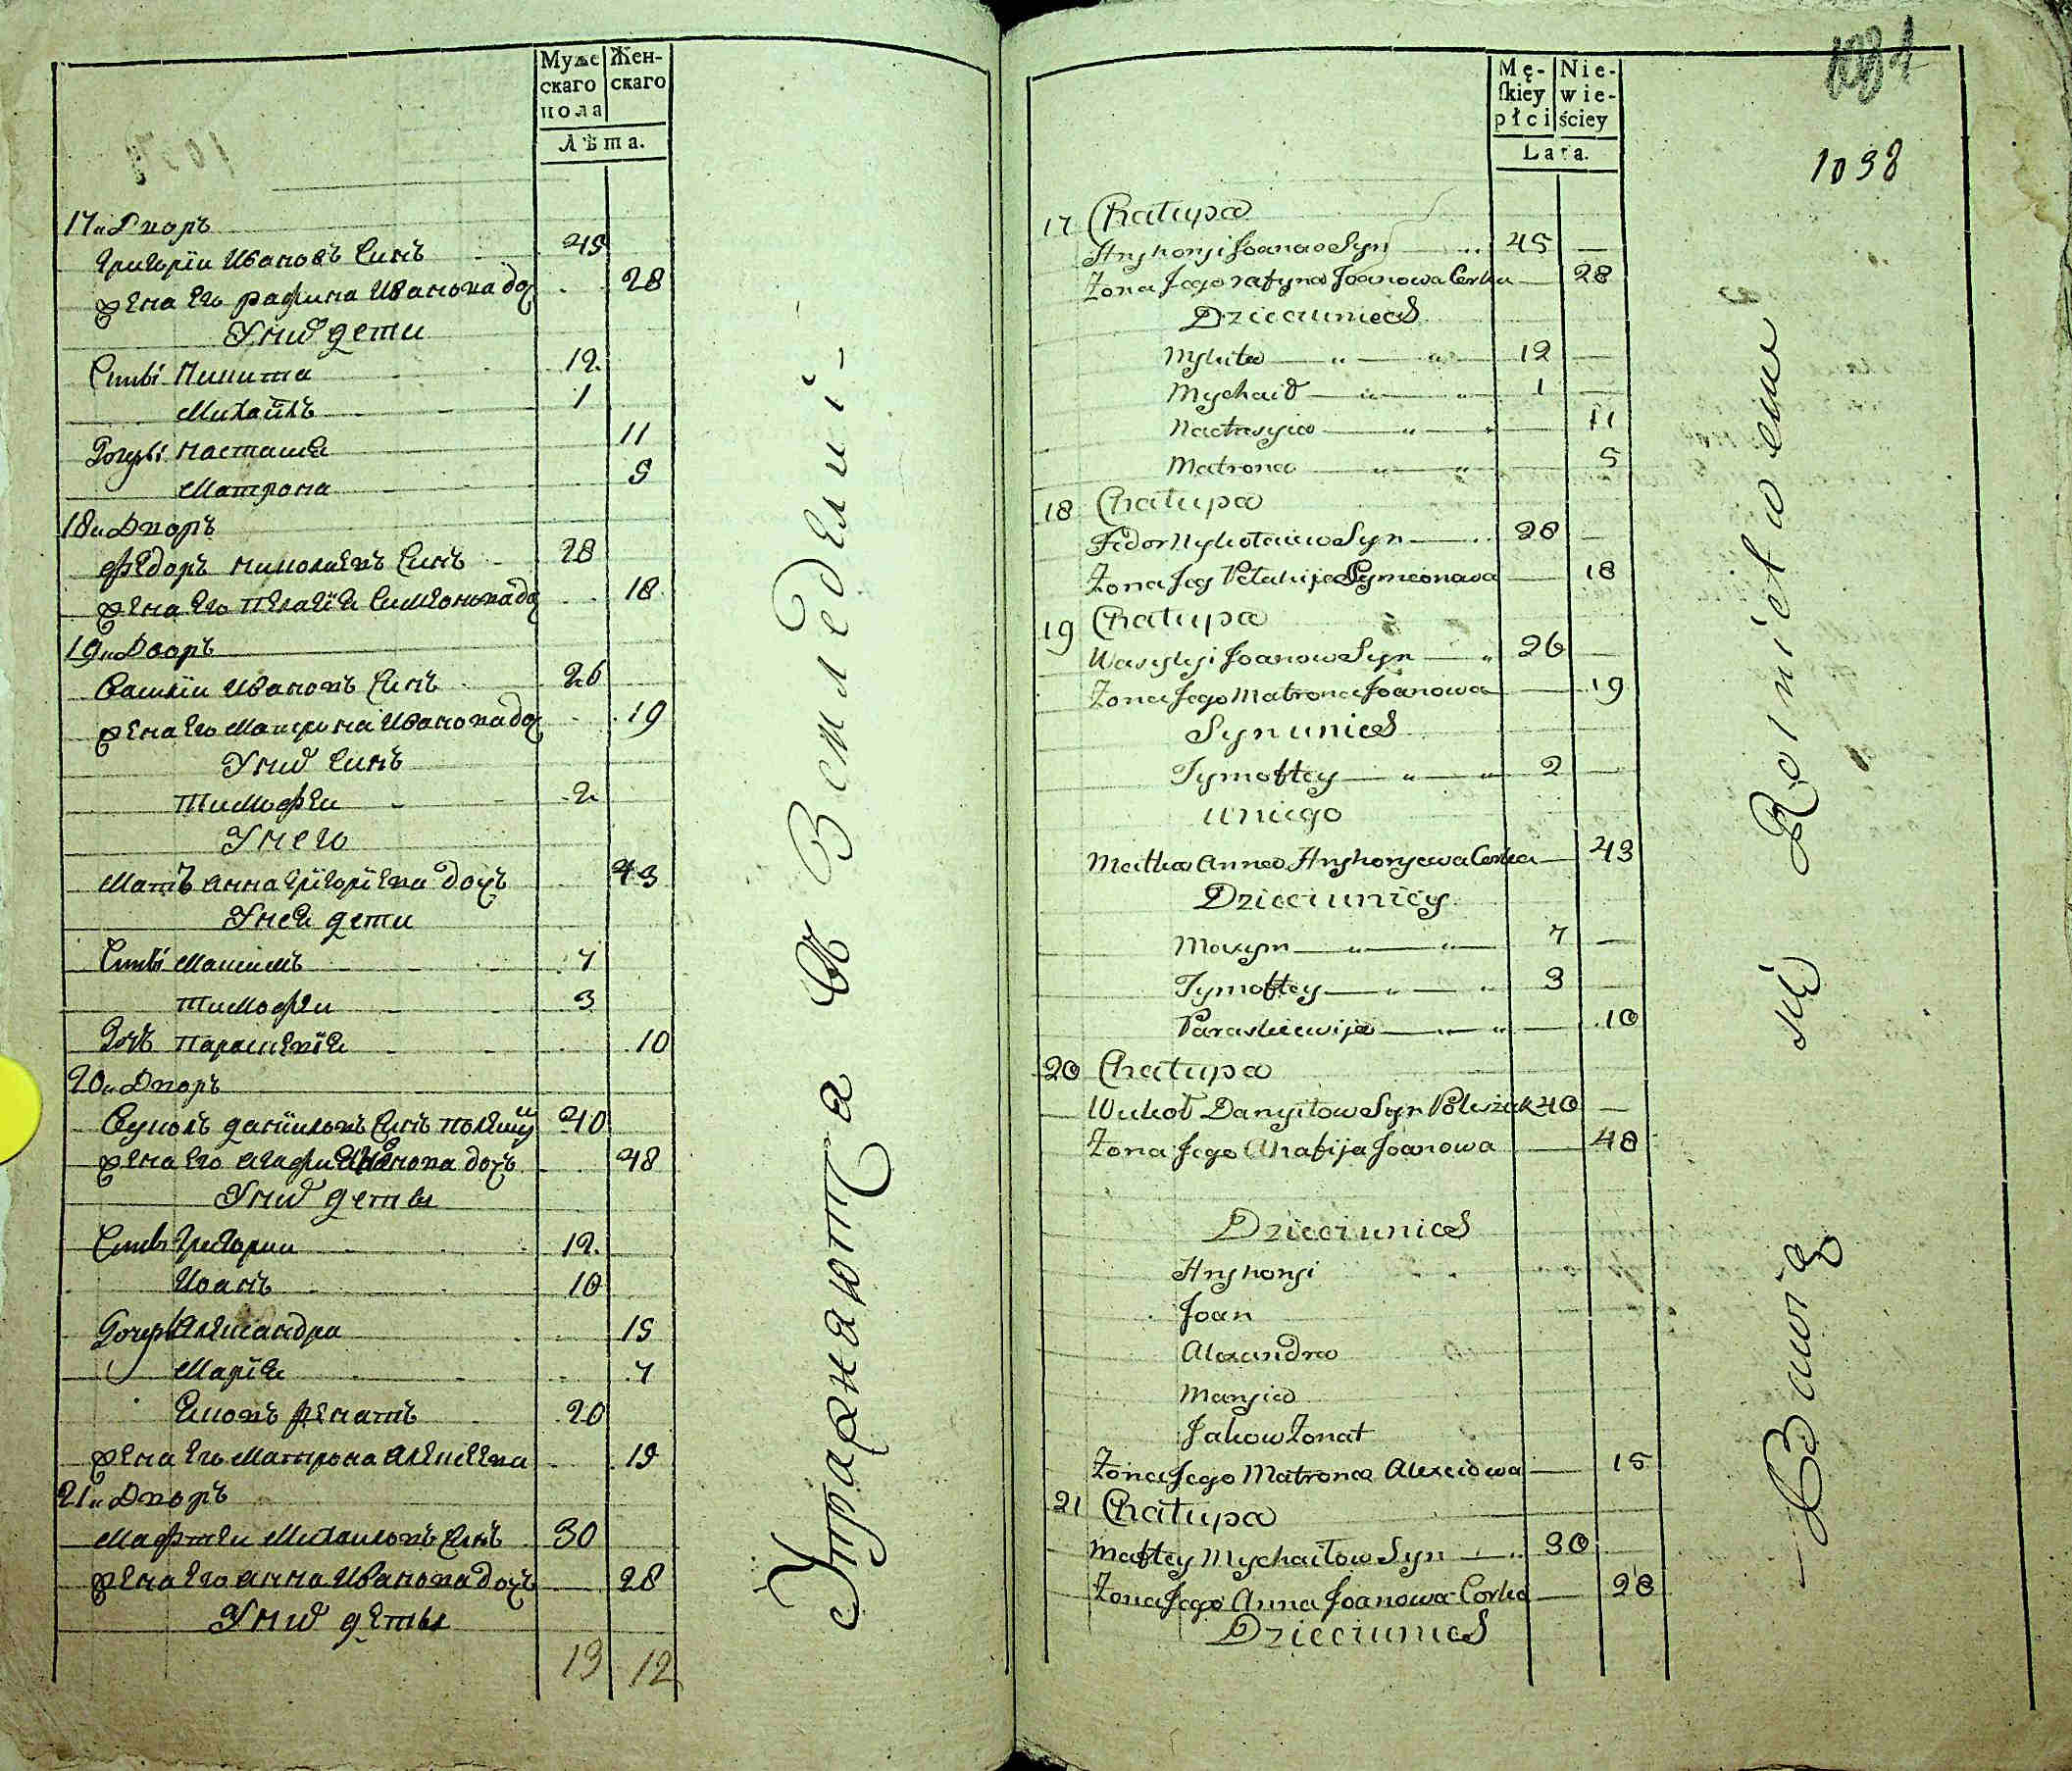 Муже
скаго
пола
Жен-
скаго
Лѣта.
17й Дворъ
Григорїи Ивановъ Синъ 45
жена Его рафина Иванова до 28
У них дети
Сины Микита 12
Михаилъ 1
Дочеры Настасия 11
Матрона 5
18й Дворъ
Федоръ Николаевъ Синъ 28
жена Его Пелагїя Симеонова до 18
19й Дворъ
Василїи Ивановъ Синъ 26
жена Его Матрона Иванова до 19
У них Синъ
Тимофеи 2
У него
Мать Анна Григорїева дочъ 43
У неи дети
Сины Максимъ 7
Тимофеи 3
Дочъ Параскевїя 10
20й Дворъ
Вуколъ данїиловъ Синъ 40
жена Его Агафия Иванова дочъ 48
У них дети
Сины Григории 12
Иванъ 10
Дочеры Александра 15
Марїя 7
Яковъ женатъ 20
жена Его Матрона Алексеева 19
21й Дворъ
Мафтеи Михаиловъ Синъ 30
жена Его Анна Иванова дочъ 28
У них дети
13 12
Упражняютца в Земледелии
Mę-
skiey
płci
Nie-
wie-
ściey
Lata.
1038
17 Chałupa
Hryhoryi Joanow Syn 45
Żona Jego rafyna Joanowa Corka 28
Dzieci unich
Mykita 12
Mychaił 1
Nastasyia 11
Matrona 5
18 Chałupa
Fedor Mykołaiew Syn 28
Żona Jeg Pelahija Symeonowa 18
19 Chałupa
Wasylyi Joanow Syn 26
Żona Jego Matrona Joanowa 19
Syn unich
Tymoftey 2
uniego
Matka Anna Hryhoryewa Corka 43
Dzieci uniey
Maxym 7
Tymoftey 3
Paraskiewija 10
20 Chałupa
Wukoł Danyiłow Syn Poleszuk 40
Żona Jego Ahafija Joanowa 48
Dzieci unich
Hryhoryi
Joan
Alexandra
Maryia
Jakow Żonat
Żona Jego Matrona Alexeiowa 15
21 Chałupa
Maftey Mychaiłow Syn 30
Żona Jego Anna Joanowa Corka 28
Dzieci unich
Bawią się Rolnictwem